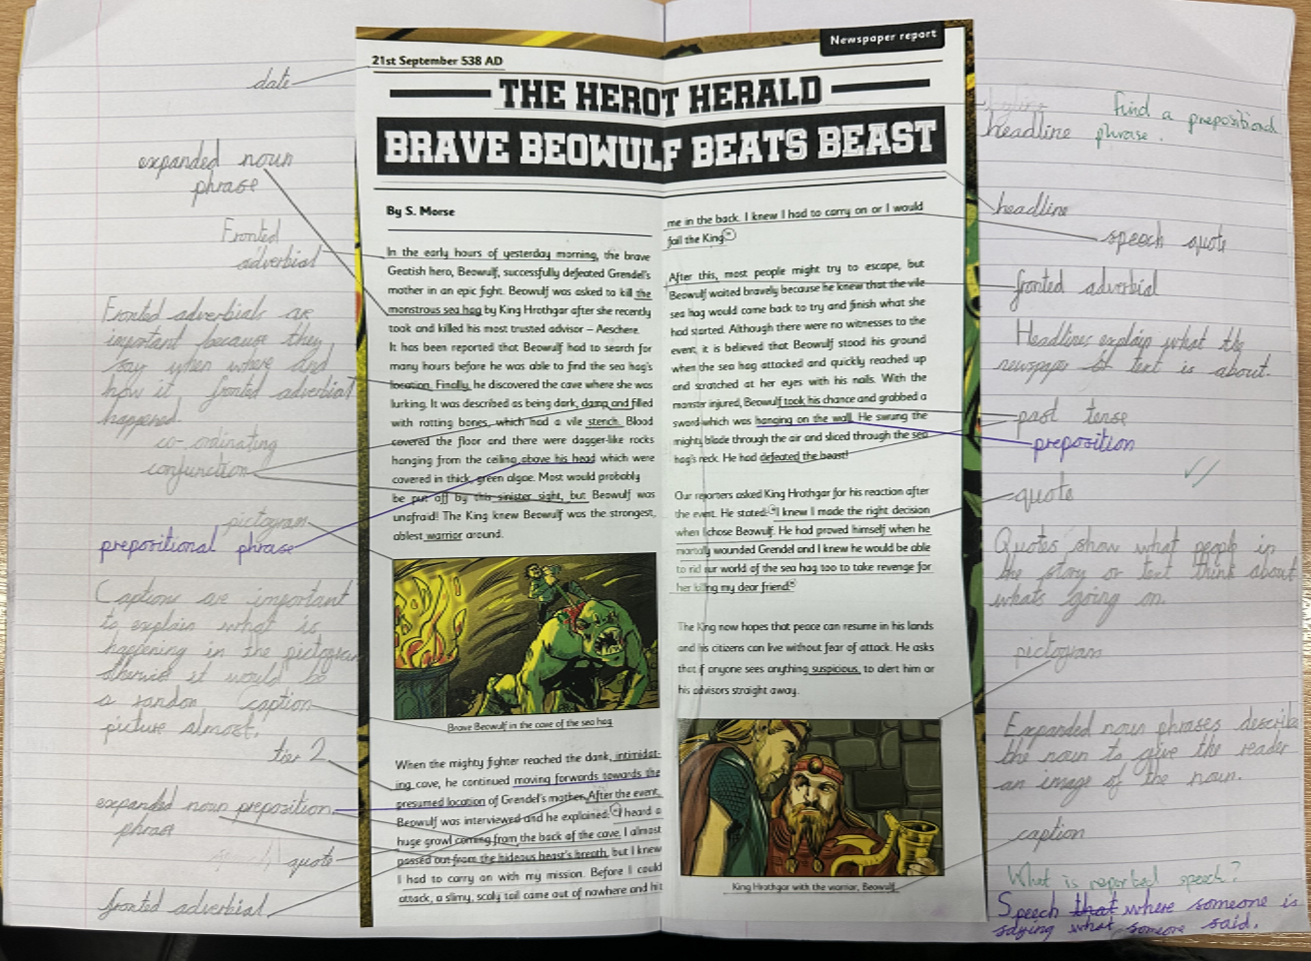 date
expanded noun
phrase
Fronted
adverbial
Fronted adverbials are
important because they
say when where and
how it fronted adverbial
happened.
co-ordinating
conjunction
pictogram
prepositional phrase
Captions are important
to explain what is
happening in the pictogram
it would be
a random caption
picture almost.
tier 2
expanded noun preposition
phrase
quote
fronted adverbial
Newspaper report
21st September 538 AD
THE HEROT HERALD
BRAVE BEOWULF BEATS BEAST
By S. Morse
In the early hours of yesterday morning, the brave
Geatish hero, Beowulf, successfully defeated Grendel's
mother in an epic fight. Beowulf was asked to kill the
monstrous sea hag by King Hrothgar after she recently
took and killed his most trusted advisor – Aeschere.
It has been reported that Beowulf had to search for
many hours before he was able to find the sea hag's
location. Finally, he discovered the cave where she was
lurking. It was described as being dark, damp and filled
with rotting bones, which had a vile stench. Blood
covered the floor and there were dagger-like rocks
hanging from the ceiling above his head which were
covered in thick, green algae. Most would probably
be put off by this sinister sight, but Beowulf was
unafraid! The King knew Beowulf was the strongest,
ablest warrior around.
Brave Beowulf in the cave of the sea hag
When the mighty fighter reached the dank, intimidat-
ing cave, he continued moving forwards towards the
presumed location of Grendel's mother. After the event,
Beowulf was interviewed and he explained: "I heard a
huge growl coming from the back of the cave. I almost
passed out from the hideous beast's breath, but I knew
I had to carry on with my mission. Before I could
attack, a slimy, scaly tail came out of nowhere and hit
me in the back. I knew I had to carry on or I would
fail the King"
After this, most people might try to escape, but
Beowulf waited bravely because he knew that the vile
sea hag would come back to try and finish what she
had started. Although there were no witnesses to the
event, it is believed that Beowulf stood his ground
when the sea hag attacked and quickly reached up
and scratched at her eyes with his nails. With the
monster injured, Beowulf took his chance and grabbed a
sword which was hanging on the wall. He swung the
mighty blade through the air and sliced through the sea
hag's neck. He had defeated the beast!
Our reporters asked King Hrothgar for his reaction after
the event. He stated: "I knew I made the right decision
when I chose Beowulf. He had proved himself when he
mortally wounded Grendel and I knew he would be able
to rid our world of the sea hag too to take revenge for
her killing my dear friend"
The King now hopes that peace can resume in his lands
and his citizens can live without fear of attack. He asks
that if anyone sees anything suspicious, to alert him or
his advisors straight away.
King Hrothgar with the warrior, Beowulf
headline
find a prepositional
phrase.
headline
speech quote
fronted adverbial
Headlines explain what the
newspaper text is about.
past tense
preposition
quote
Quotes show what people in
the story or text think about
whats going on.
pictogram
Expanded noun phrases describe
the noun to give the reader
an image of the noun.
caption
What is reported speech?
Speech that where someone is
saying what someone said.